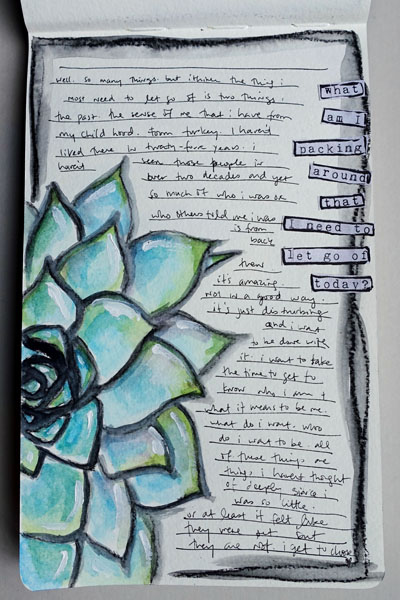 well. so many things. but i think the thing i
most need to let go of is two things.
the past. the sense of me that i have from
my child hood. from turkey. I haven't
lived there in twenty-five years. i
haven't seen those people in
over two decades and yet
so much of who i was or
who others told me i was
is from
back
then
it's amazing.
not in a good way.
it's just disturbing
and i want
to be done with
it. i want to take
the time to get to
know who i am +
what it means to be me.
what do i want. who
do i want to be. all
of these things are
things i haven't thought
of deeply since i
was so little.
or at least it felt like
they were out but
they are not. i get to choose
what
am I
packing
around
that
I need to
let go of
today?